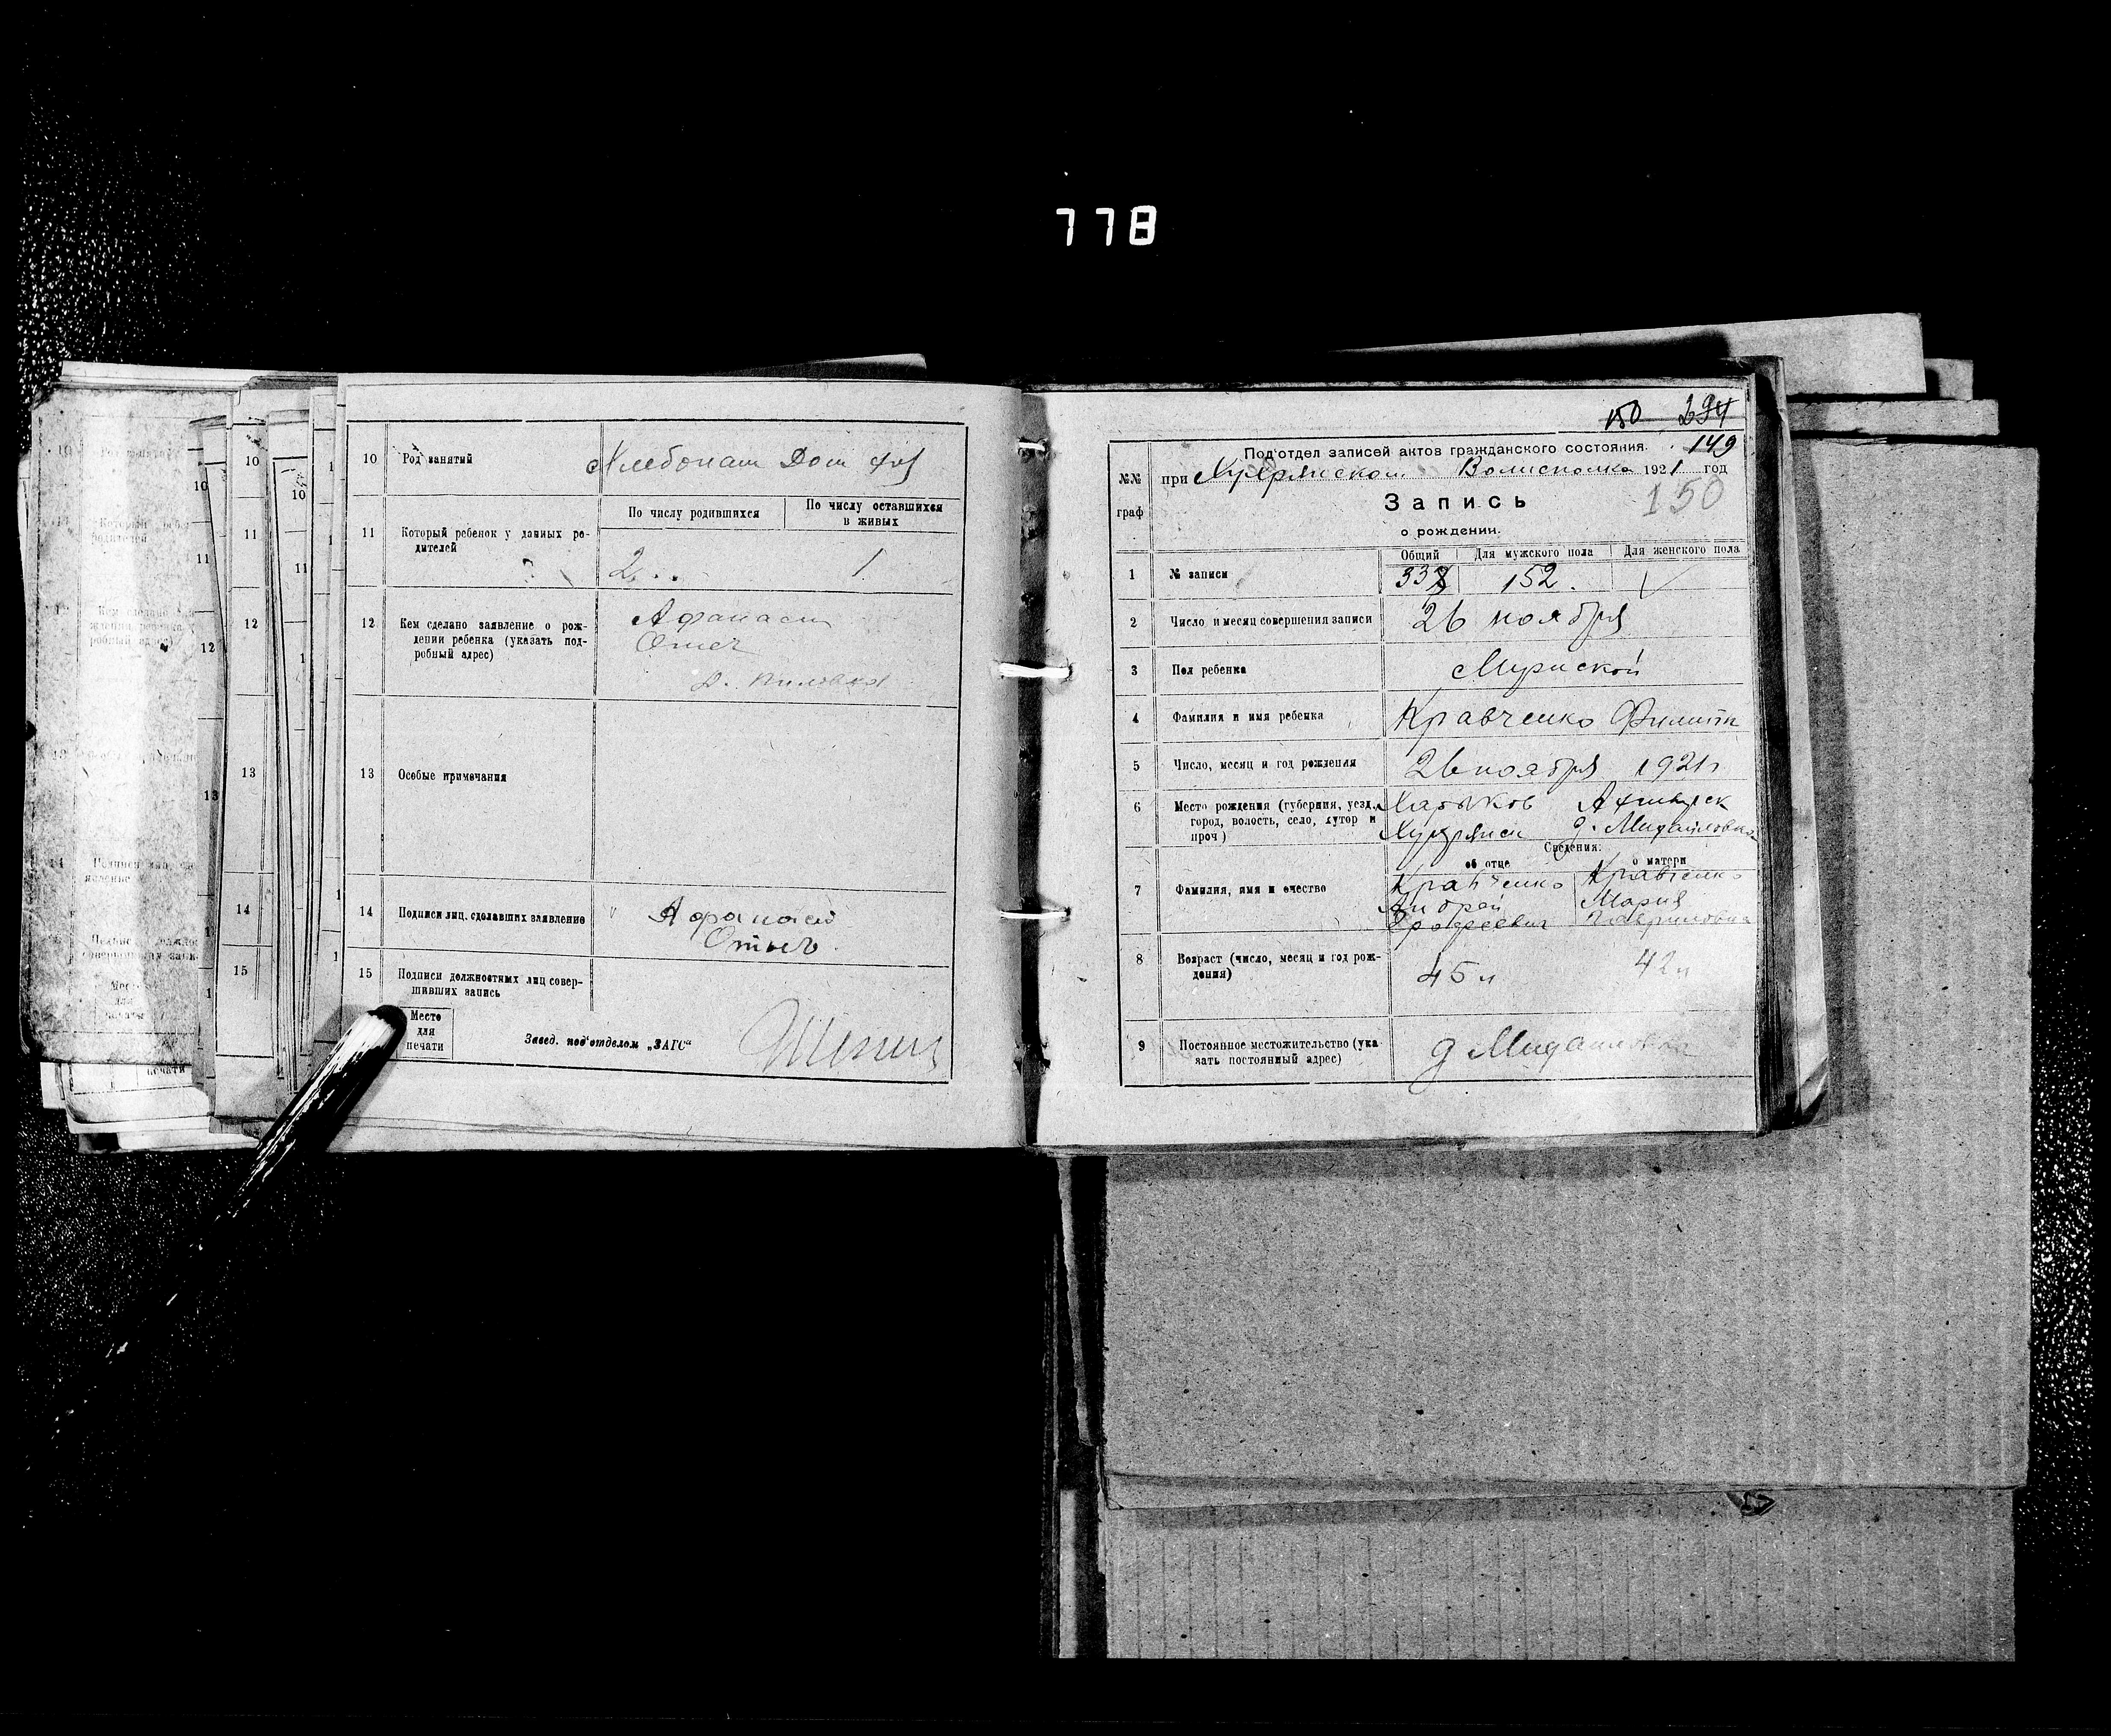 778
10 Род занятий
Хлебопаш Дом хоз
11 Который ребенок у данных ро-
дителей
По числу родившихся
По числу оставшихся
в живых
2 1
12 Кем сделано заявление о рож-
дении ребенка (указать под-
робный адрес)
Афанасий
Отец
13 Особые примечания
14 Подписи лиц, сделавших заявление
Афанасий
Отец
15 Подписи должностных лиц совер-
шивших запись
Место
для
печати
Завед. под'отделом „ЗАГС“
150 294
Под'отдел записей актов гражданского состояния. 149
№№
граф
при Волисполкоме 1921 год
Запись 150
о рождении.
Общий Для мужского пола Для женского пола
1 № записи 338 152
2 Число и месяц совершения записи 26 ноября
3 Пол ребенка Мужской
4 Фамилия и имя ребенка Кравченко Филипп
5 Число, месяц и год рождения 26 ноября 1921 г
6 Место рождения (губерния, уезд,
город, волость, село, хутор и
проч)
Харьков Ахтырск
д. Михайловка
Сведения:
об отце о матери
7 Фамилия, имя и очество
Кравченко Кравченко
Андрей Мария
Гавриловна
8 Возраст (число, месяц и год рож-
дения)
45 л 42 л
9 Постоянное местожительство (ука
зать постоянный адрес)
д Михайловка